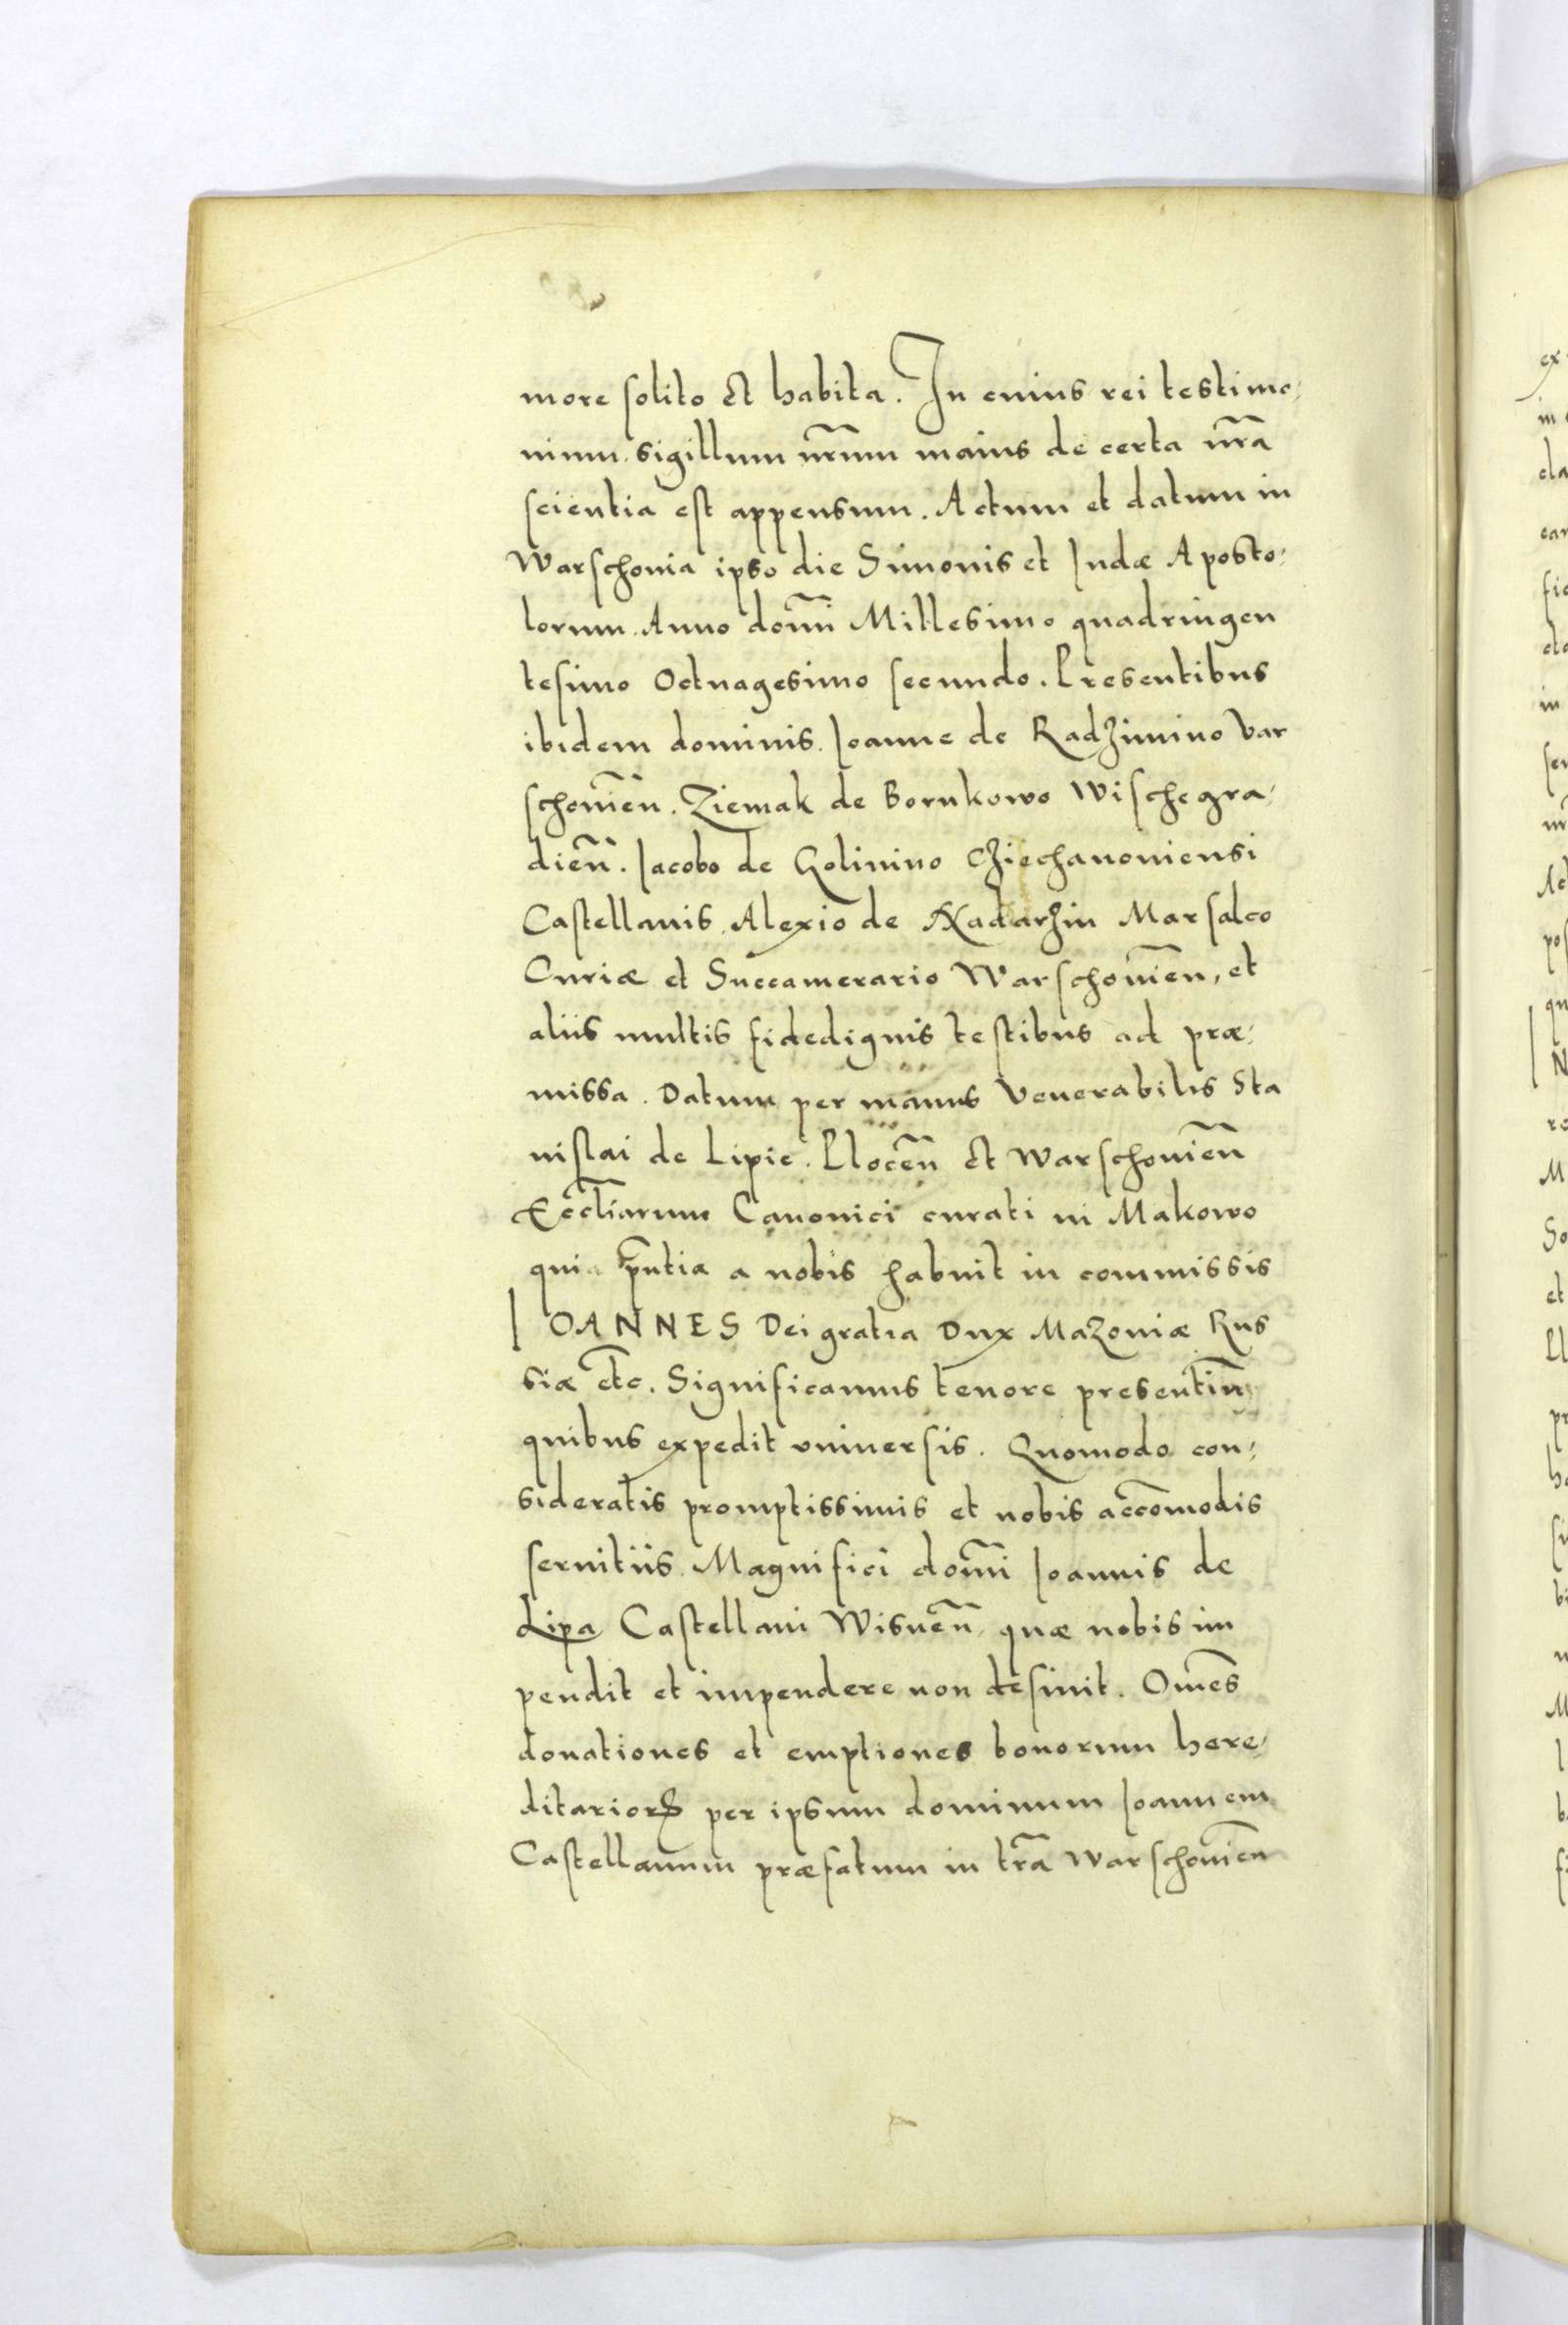 more solito et habita. In cuius rei testimo,
nium. sigillum nr̃um maius de certa nr̃a
scientia est appensum. Actum et datum in
Warschouia ipso die Simonis et Iudæ Aposto,
lorum. Anno domĩ Millesimo quadringen
tesimo Octuagesimo secundo. Presentibus
ibidem dominis. Ioanne de Radzimino Var
schouien̄. Ziemak de Bornkowo Wischegra,
dien̄. Iacobo de Golinino Cziechanouiensi
Castellanis. Alexio de Nadarzin Marsalco
Curiæ et Succamerario Warschouien̄, et
aliis multis fidedignis testibus ad præ,
missa. Datum per manus Venerabilis Sta
nislai de Lipie. Plocen̄ et Warschouien̄
Eccl̃iarum Canonici curati in Makowo
qui p̃ntia a nobis habuit in commissis
IOANNES Dei gratia Dux Mazouiæ Rus
siæ etc̄. Significamus tenore presentiu̅
quibus expedit vniuersis. Quomodo con,
sideratis promptissimis et nobis acco̅modis
seruitiis. Magnifici domĩ Ioannis de
Lipa Castellani Wisnen̄, quæ nobis im
pendit et impendere non desinit. Om̅es
donationes et emptiones bonorum here,
ditarioꝝ per ipsum dominum Ioannem
Castellanum præfatum in tr̃a Warschouien̄
ex
in
da